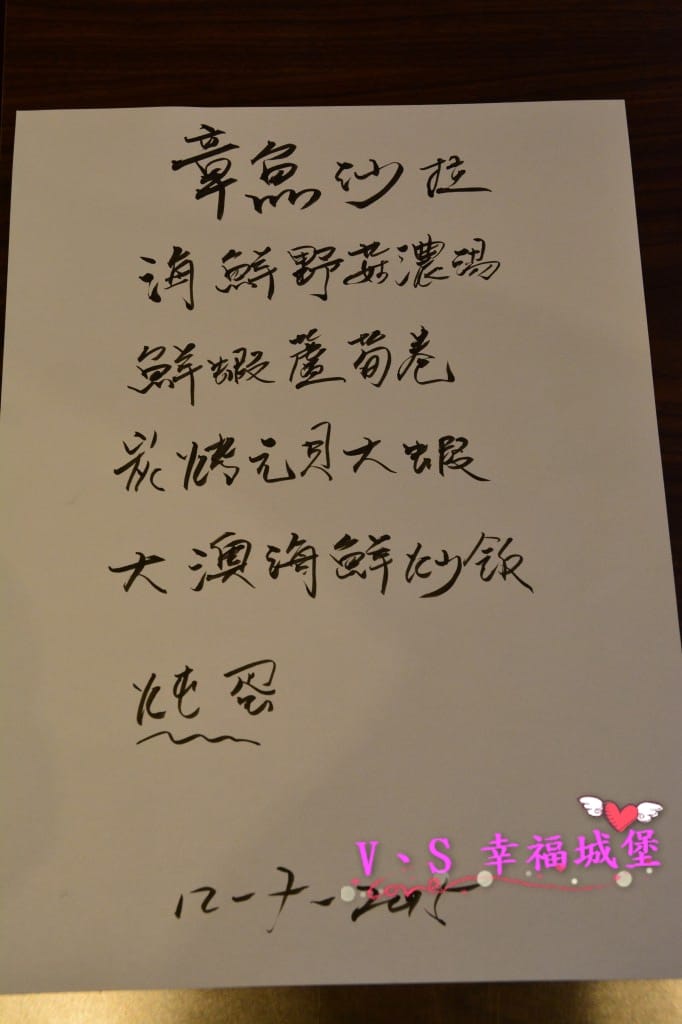 章魚沙拉
海鮮野菇濃湯
鮮蝦蘆荀卷
炭烤元貝大蝦
大澳海鮮炒飯
炖蛋
V、S 幸福城堡
12-7-2015